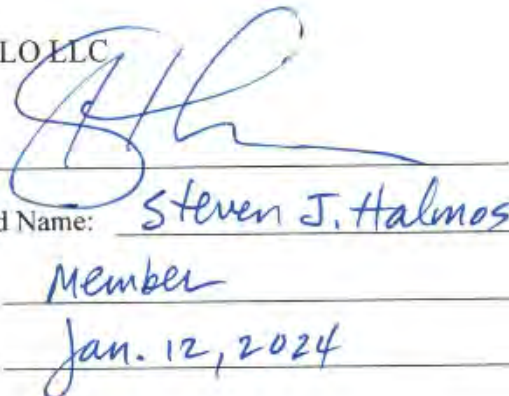 LO LLC
d Name: Steven J. Halmos
Member
Jan. 12, 2024